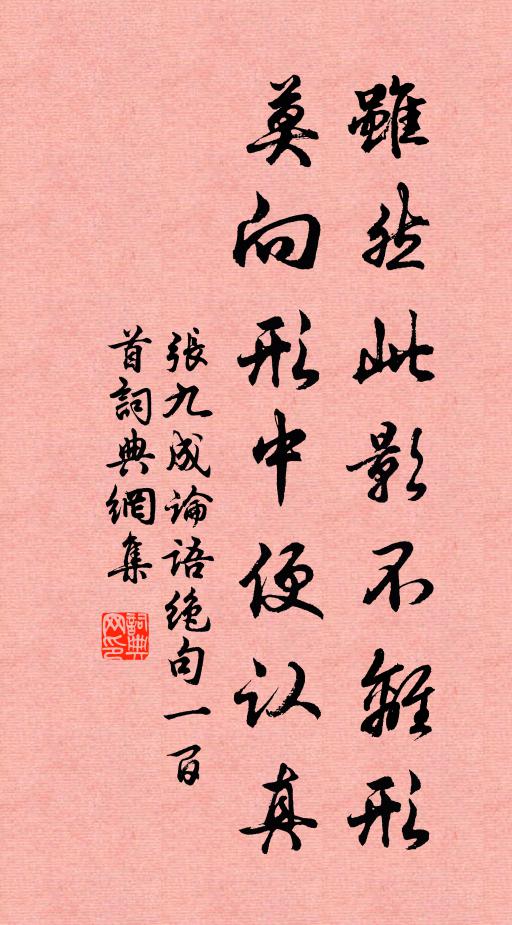 雖然此影不離形
莫向形中便认真
張九成論語绝句一百
首詞典網集
詞典网印